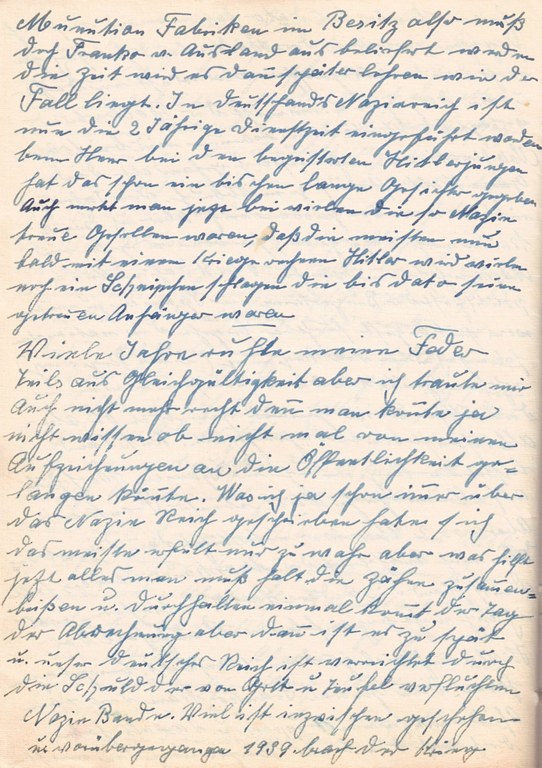 Munution Fabriken im Besitz also muß
doch Franko v. Ausland aus beliefert werden
die Zeit wird es dan später lehren wie der
Fall liegt. In deutschlands Naziereich ist
nun die 2 Jährige Dienstzeit eingeführt worden
beim Heer bei den begeisterten Hitlerjungen
hat das schon ein bischen lange Gesichter gegeben
Auch merkt man jetz bei vielen die so Nazie
treue Gesellen waren, daß die meisten nun
bald mit einem Kriege rechnen Hitler wird vielen
noch ein Schnipchen schlagen die bis dato seine
getreuen Anhänger waren
Viele Jahre ruhte meine Feder
Teils aus Gleichgültigkeit aber ich traute mir
Auch nicht mehr recht den man konte ja
nicht wissen ob nicht mal von meinen
Aufzeichnungen an die Öffentlichkeit ge-
langen könte. Was ich ja schon imer über
das Nazie Reich geschrieben habe hat sich
das meiste erfült nur zu wahr aber was hilft
jetzt alles man muß halt die Zähne zusamen-
beißen u. durchhalten einmal komt der Tag
der Abrechnung aber dan ist es zu spät
u. unser deutsches Reich ist vernichtet durch
die Schuld der von Gott u Teufel verfluchten
Nazie Bande. Viel ist inzwischen geschehen
u. vorübergegangen 1939 brach der Krieg